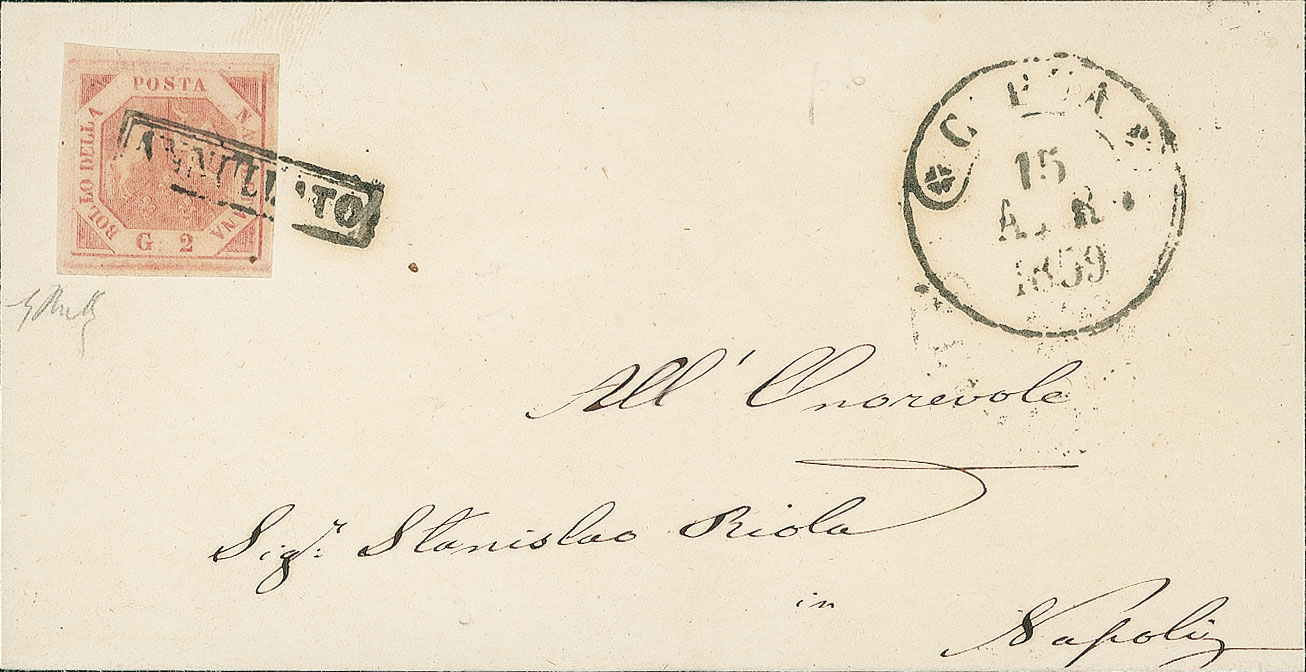 POSTA
BOLLO DELLA
G 2
ANNULLATO
15
1859
All' Onorevole
Sigr. Stanislao Riola
in
Napoli